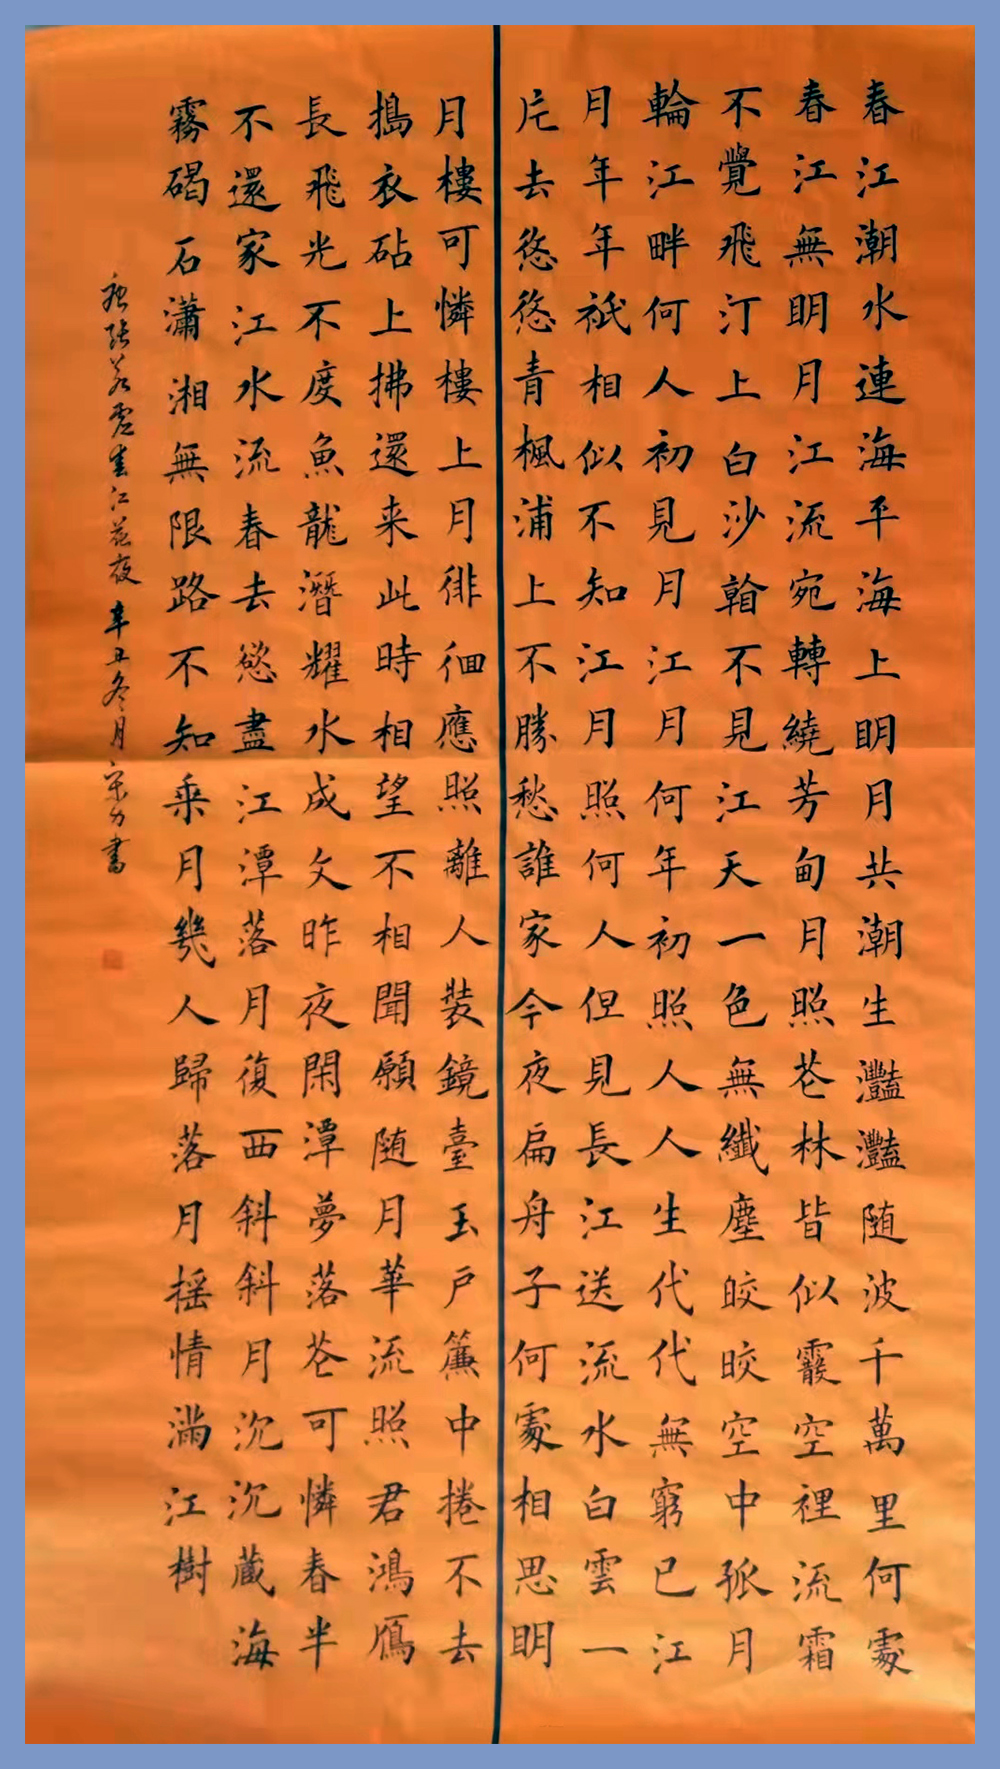 春江潮水連海平海上明月共潮生灩灩随波千萬里何處
春江無明月江流宛轉繞芳甸月照花林皆似霰空裡流霜
不覺飛汀上白沙䪨不見江天一色無纖塵皎皎空中孤月
輪江畔何人初見月江月何年初照人人生代代無窮已江
月年年祗相似不知江月照何人但見長江送流水白雲一
片去悠悠青楓浦上不勝愁誰家今夜扁舟子何處相思明
月樓可憐樓上月徘徊應照離人裝鏡臺玉戶簾中捲不去
搗衣砧上拂還来此時相望不相聞願随月華流照君鴻鴈
長飛光不度魚龍潛耀水成文昨夜閑潭夢落花可憐春半
不還家江水流春去慾盡江潭落月復西斜斜月沉沉蔵海
霧碣石瀟湘無限路不知乘月幾人歸落月搖情滿江樹
張若虛春江花夜辛丑冬月書